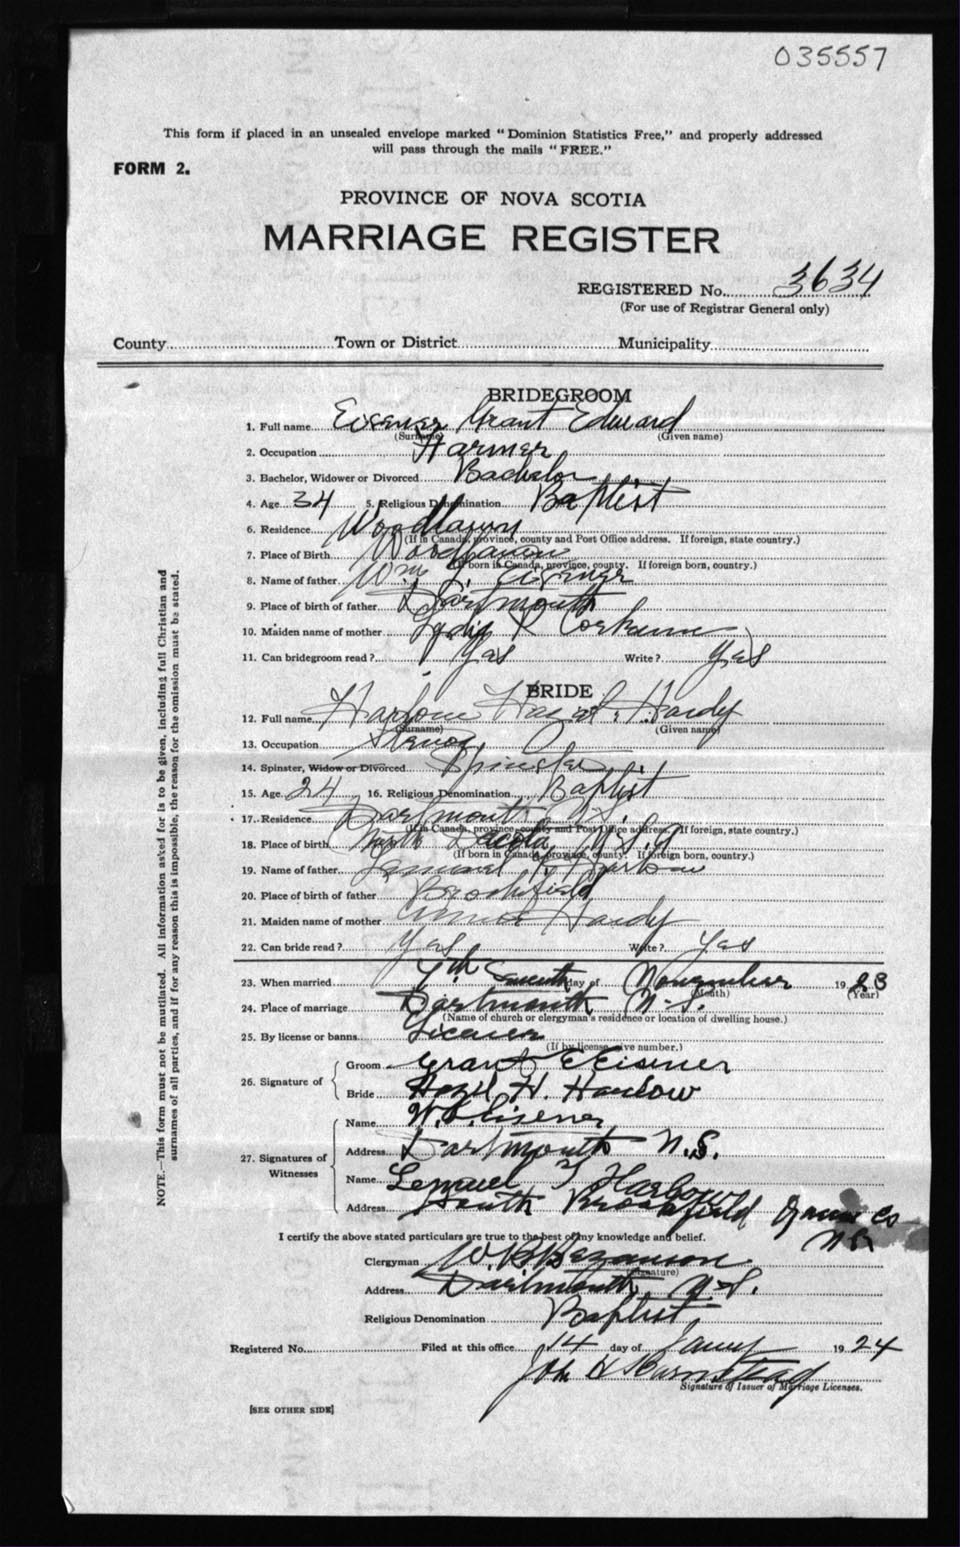 035557
This form if placed in an unsealed envelope marked "Dominion Statistics Free," and properly addressed
will pass through the mails "FREE."
FORM 2.
PROVINCE OF NOVA SCOTIA
MARRIAGE REGISTER
REGISTERED No. 3634
(For use of Registrar General only)
County Town or District Municipality
BRIDEGROOM
1. Full name Eisener Grant Edward
(Surname) (Given name)
2. Occupation Farmer
3. Bachelor, Widower or Divorced Bachelor
4. Age 34 5. Religious Denomination Baptist
6. Residence Woodlawn
(If in Canada, province, county and Post Office address. If foreign, state country.)
7. Place of Birth Woodlawn
(If born in Canada, province, county. If foreign born, country.)
8. Name of father Wm L. Eisener
9. Place of birth of father Dartmouth
10. Maiden name of mother Lydia Corkum
11. Can bridegroom read? Yes Write? Yes
BRIDE
12. Full name Harlow Hazel Hardy
(Surname) (Given name)
13. Occupation Stenog
14. Spinster, Widow or Divorced Spinster
15. Age 24 16. Religious Denomination Baptist
17. Residence Dartmouth N.S.
(If in Canada, province, county and Post Office address. If foreign, state country.)
18. Place of birth North Dacota U.S.A
(If born in Canada, province, county. If foreign born, country.)
19. Name of father Lemuel Harlow
20. Place of birth of father Brookfield
21. Maiden name of mother Hardy
22. Can bride read? Yes Write? Yes
23. When married 7th Seventh day of November 1923
(Month) (Year)
24. Place of marriage Dartmouth N.S.
(Name of church or clergyman's residence or location of dwelling house.)
25. By license or banns License
(If by license, give number.)
26. Signature of
Groom Grant E Eisener
Bride Hazel H. Harlow
27. Signatures of Witnesses
Name W. L. Eisener
Address Dartmouth N.S.
Name Lemuel Harlow
Address South Brookfield Queens Co
N.S
I certify the above stated particulars are true to the best of my knowledge and belief.
Clergyman W. B. Bezanson
(Signature)
Address Dartmouth, N.S.
Religious Denomination Baptist
Registered No. Filed at this office 14 day of Jany 1924
John
Signature of Issuer of Marriage Licenses.
[SEE OTHER SIDE]
NOTE.—This form must not be mutilated. All information asked for is to be given, including full Christian and
surnames of all parties, and if for any reason this is impossible, the reason for the omission must be stated.